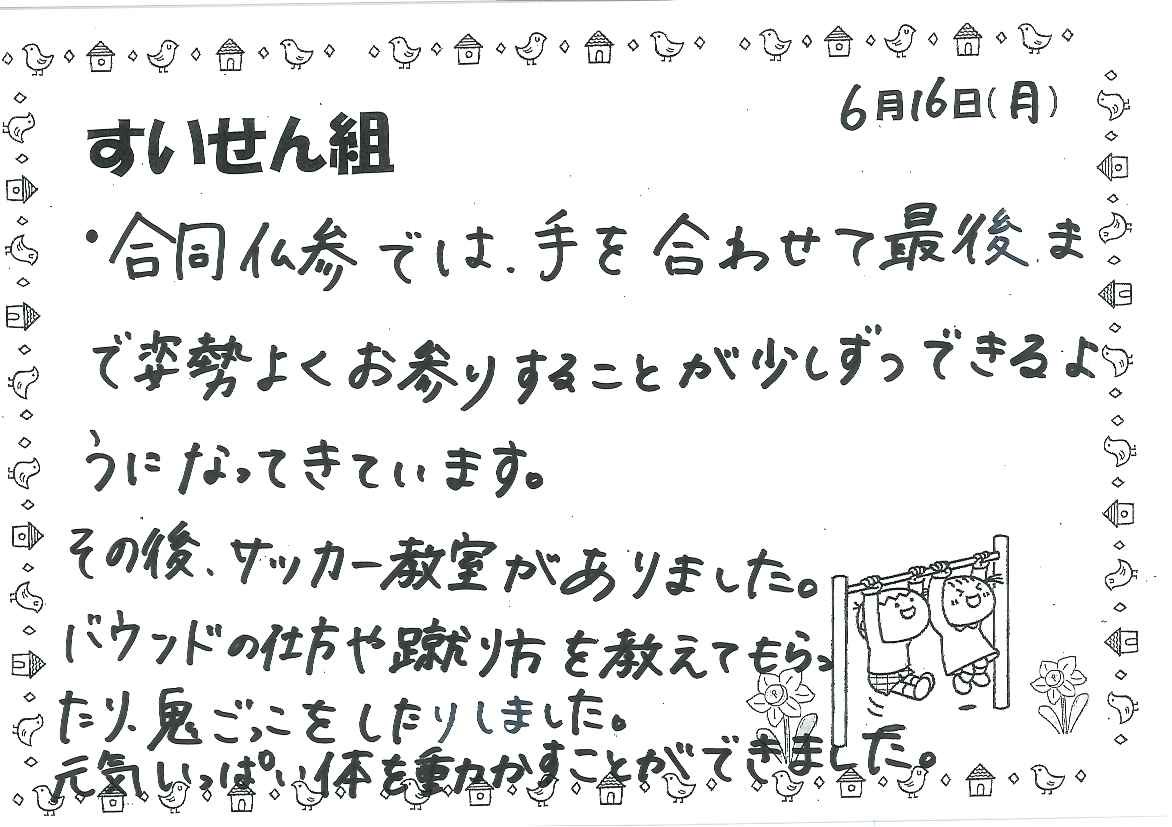 6月16日(月)
すいせん組
・合同仏参では、手を合わせて最後ま
で姿勢よくお参りすることが少しずつできるよ
うになってきています。
その後、サッカー教室がありました。
バウンドの仕方や蹴り方を教えてもらっ
たり、鬼ごっこをしたりしました。
元気いっぱい体を動かすことができました。